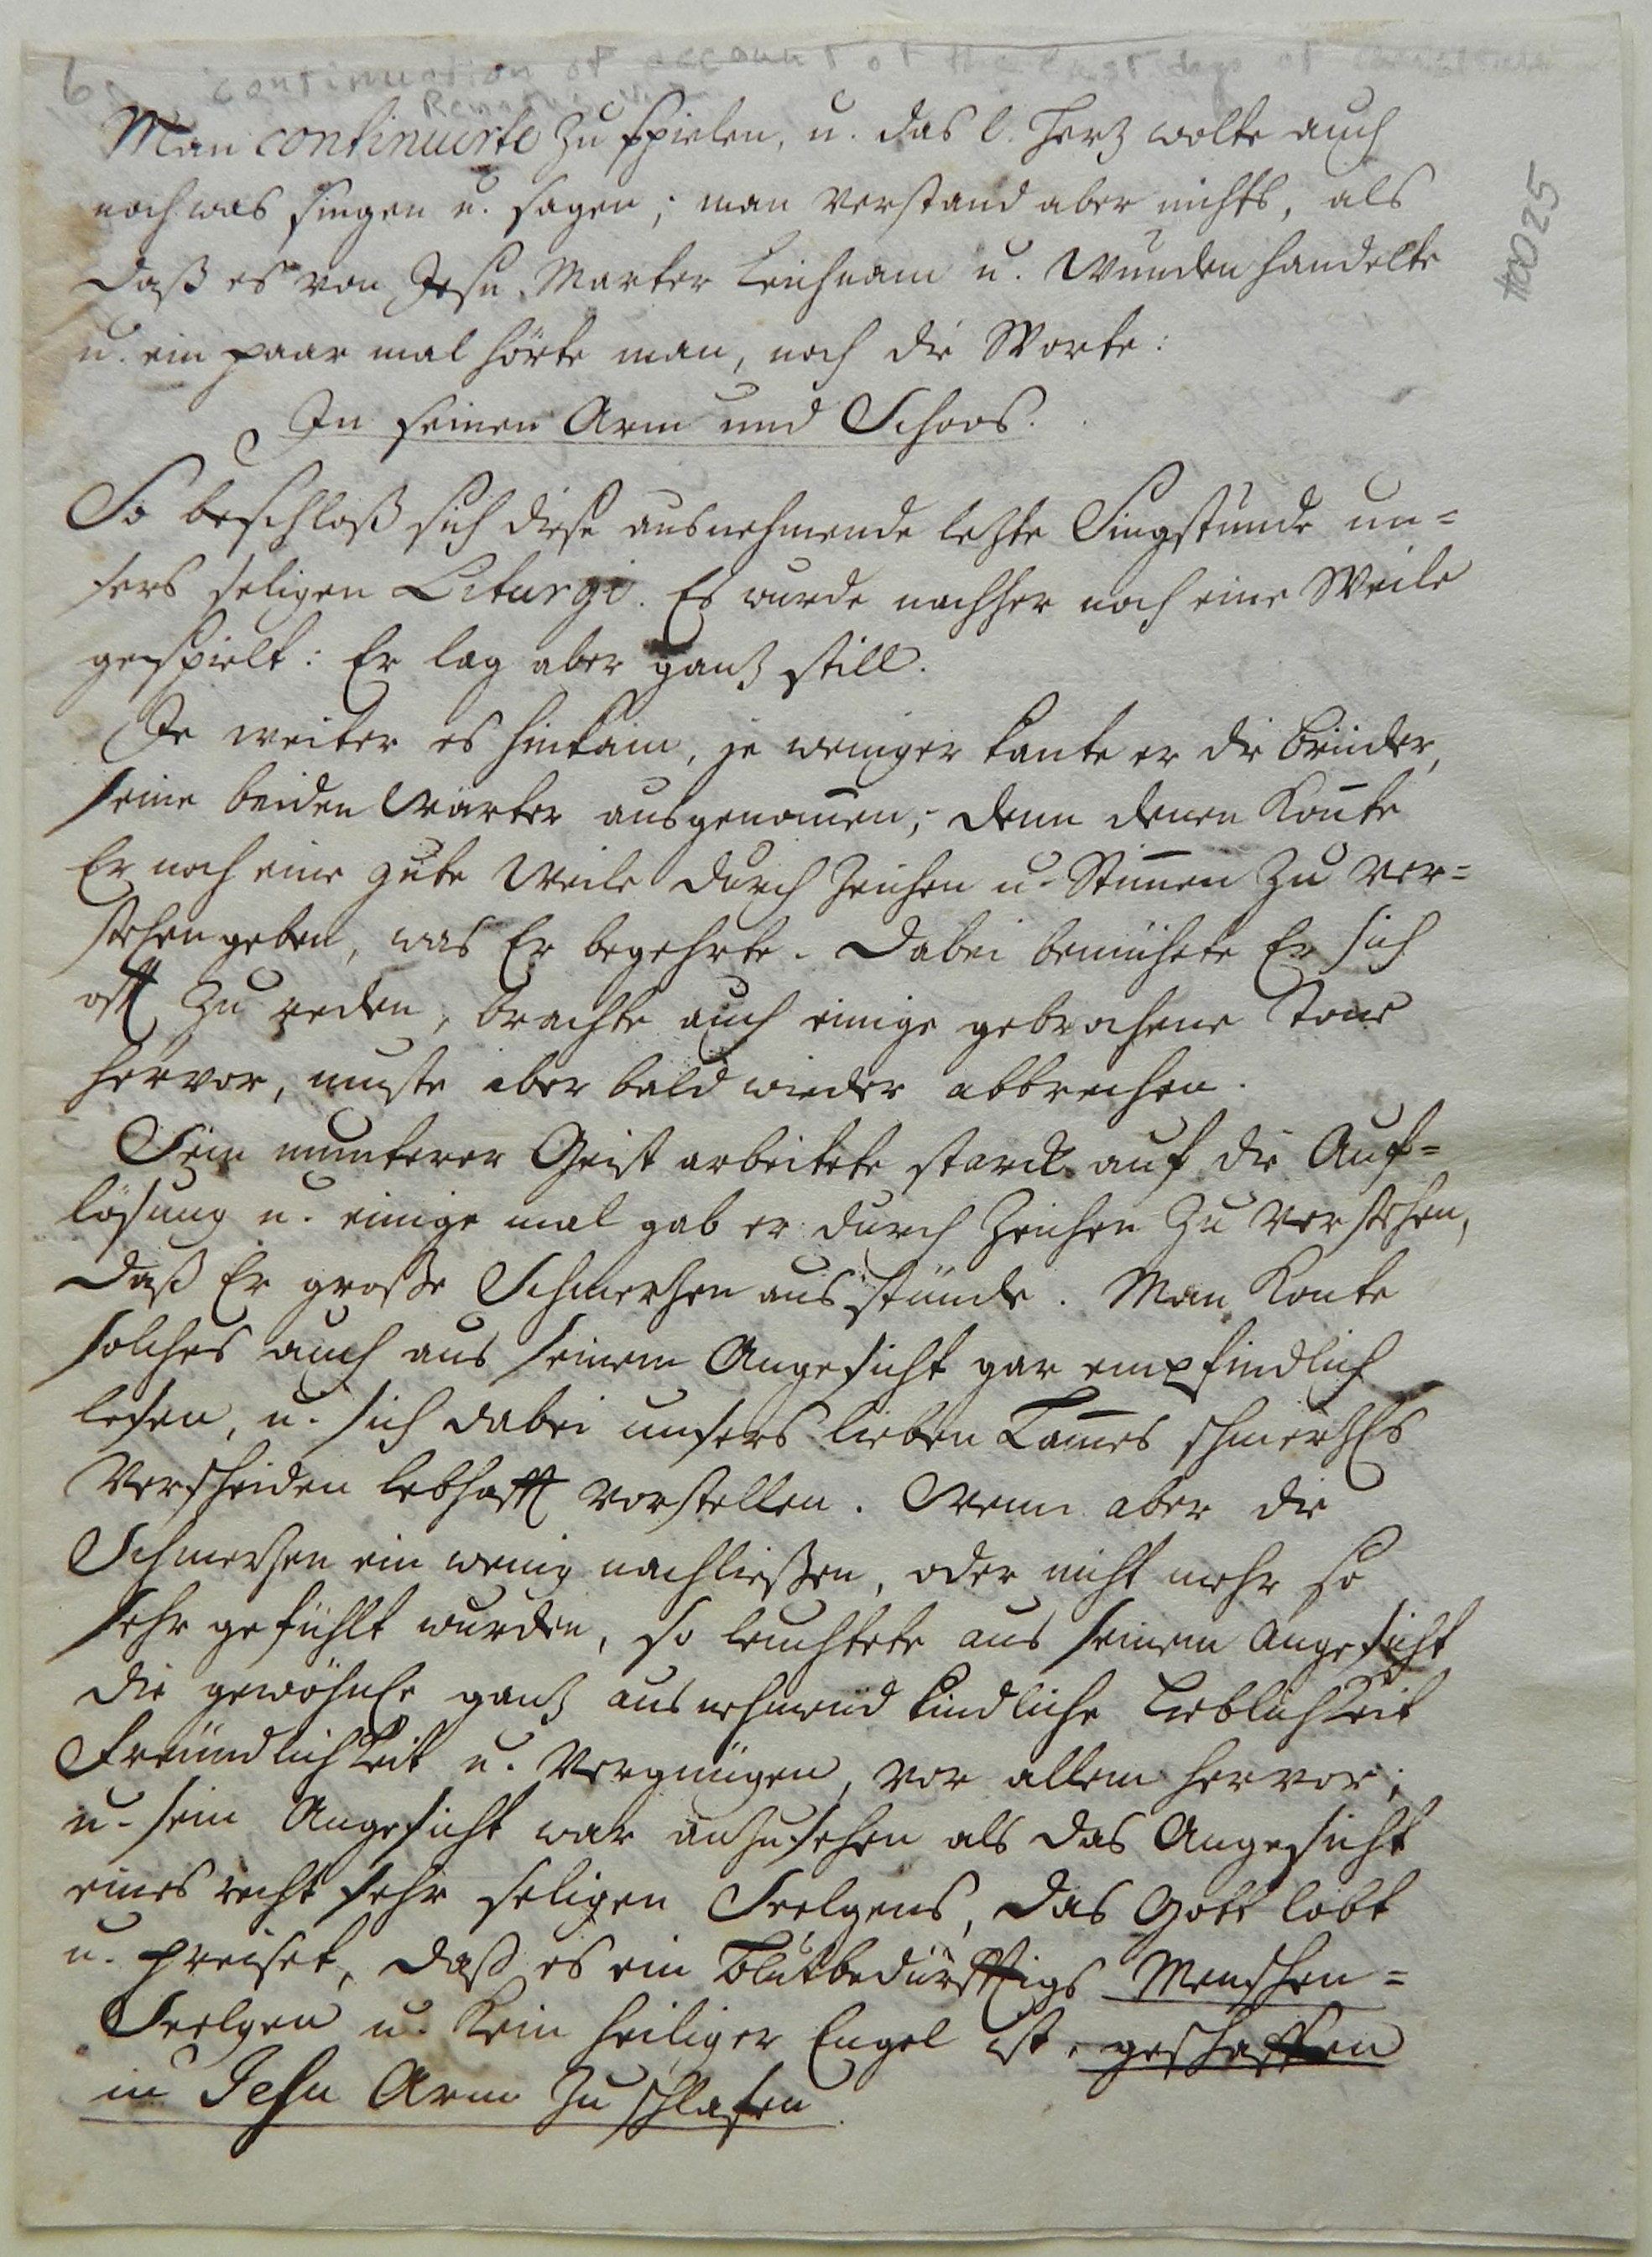 6. continuation of account of the last days of Christian
Renatus
Man continuirte zu spielen, u. das l. Herz wolte auch
noch was singen u. sagen; man verstand aber nichts, als
daß es von Jesu Marter Leichnam u. Wunden handelte
u. ein paar mal hörte man, noch die Worte:
In seinen Arm und Schoos.
So beschloß sich diese ausnehmende letzte Singstunde un=
sers seligen Liturgi. Es wurde nachher noch eine Weile
gespielt: Er lag aber gantz still.
Je weiter es hinkam, je weniger kante er die Brüder,
seine beiden Wärter ausgenom̅en; denn denen kon̅te
Er noch eine gute Weile durch Zeichen u. Stim̅en zu ver=
stehen geben, was Er begehrte. Dabei bemühete Er sich
offt zu reden, brachte auch einige gebrochene Tone
hervor, muste aber bald wieder abbrechen.
Sein munterer Geist arbeitete starck auf die Auf=
lösung u. einige mal gab er durch Zeichen zu verstehen,
daß Er große Schmertzen ausstünde. Man konte
solches auch aus seinem Angesicht gar empfindlich
lesen, u. sich dabei unsers lieben Lam̅es schmertzl's
Verscheiden lebhafft vorstellen. Wenn aber die
Schmertzen ein wenig nachließen, oder nicht mehr so
sehr gefühlt wurden, so leuchtete aus seinem Angesicht
die gewöhnl'e gantz ausnehmend kindliche Lieblichkeit
Freundlichkeit u. Vergnügen, vor allem hervor;
u. sein Angesicht war anzusehen als das Angesicht
eines recht sehr seligen Seelgens, das Gott lobt
u. preiset, daß es ein Blutbedürfftigs Menschen=
Seelgen u. kein heiliger Engel ist, geschaffen
in Jesu Arm zu schlafen.